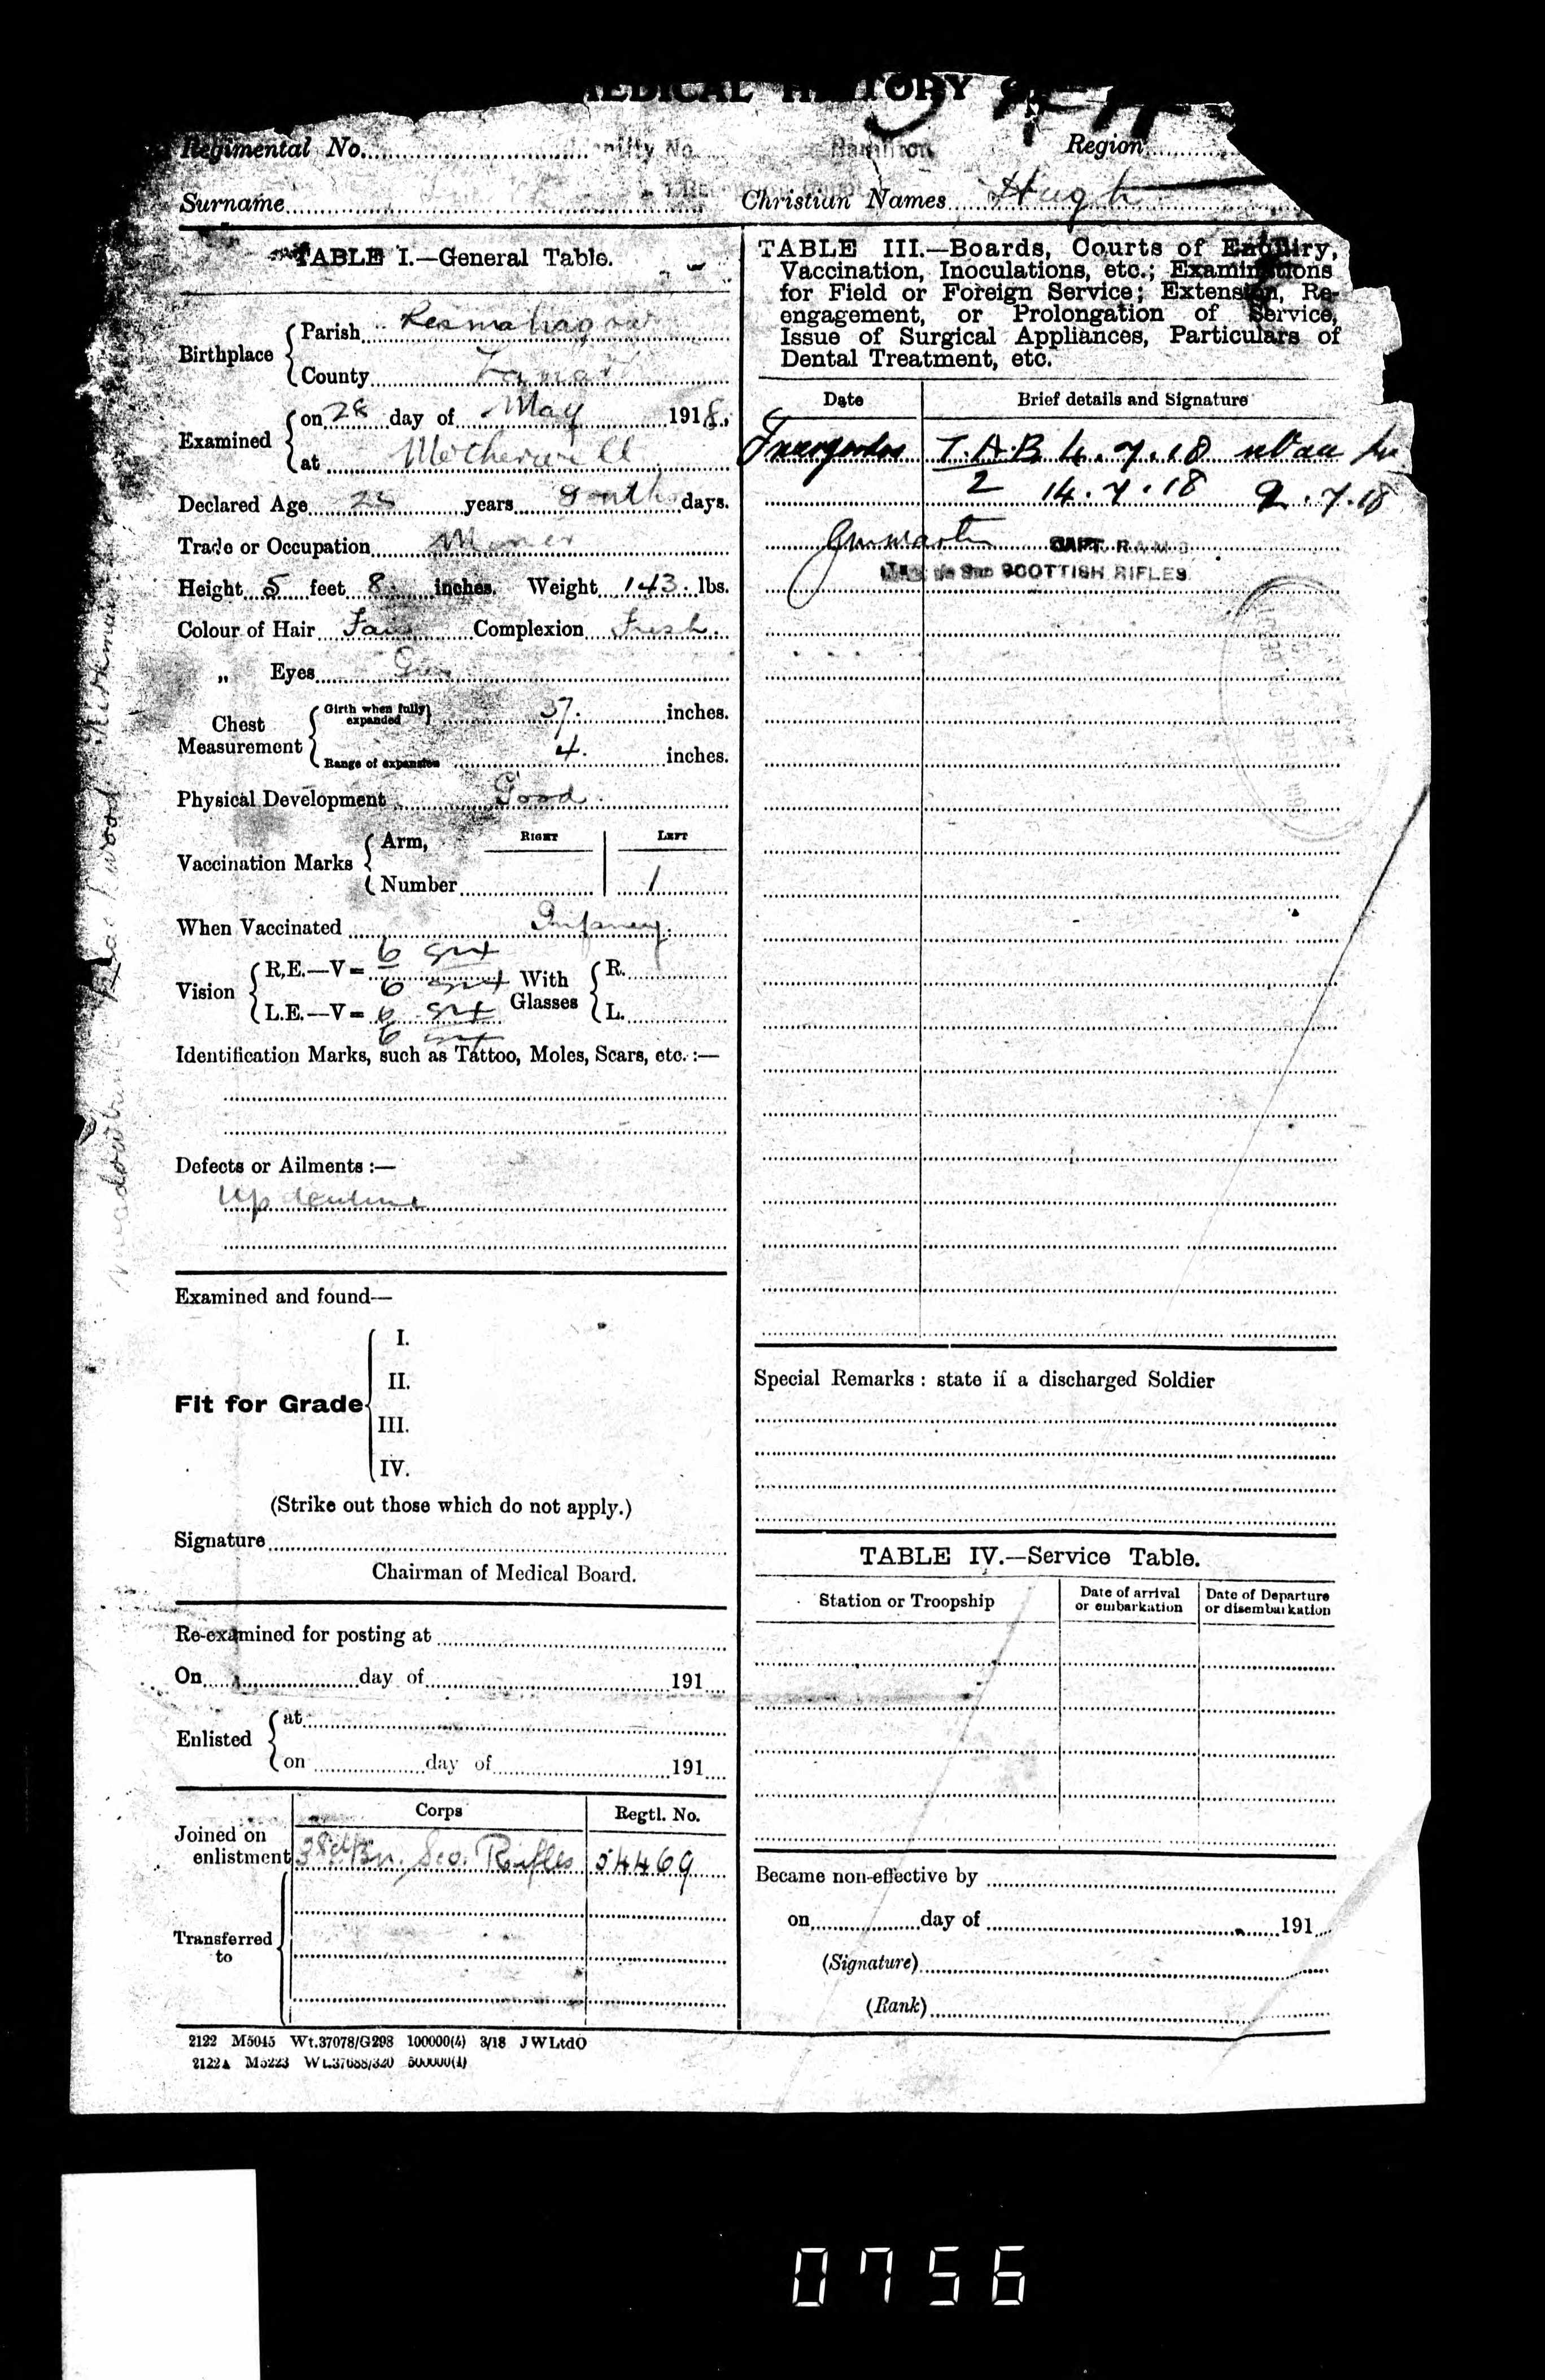 MEDICAL HISTORY
Regimental No. Hamilton Region
Surname Christian Names Hugh
TABLE I.—General Table.
Birthplace Parish Lesmahagow
County Lanark
Examined on 28 day of May 1918,
at Motherwell
Declared Age years days.
Trade or Occupation Miner
Height 5 feet 8 inches. Weight 143 lbs.
Colour of Hair Fair Complexion Fresh.
„ Eyes
Chest Measurement Girth when fully expanded 37. inches.
Range of expansion 4. inches.
Physical Development Good
Vaccination Marks Arm, RIGHT LEFT
Number 1
When Vaccinated Infancy.
Vision R.E.—V= 6 6 With Glasses R.
L.E.—V= 6 6 L.
Identification Marks, such as Tattoo, Moles, Scars, etc. :—
Defects or Ailments :—
Examined and found—
Fit for Grade
I.
II.
III.
IV.
(Strike out those which do not apply.)
Signature
Chairman of Medical Board.
Re-examined for posting at
On day of 191
Enlisted at
on day of 191
Corps Regtl. No.
Joined on enlistment 3rd Bn. Sco. Rifles 54469
Transferred to
2122 M5045 Wt.37078/G298 100000(4) 3/18 JWLtdO
TABLE III.—Boards, Courts of Enquiry,
Vaccination, Inoculations, etc.; Examinations
for Field or Foreign Service; Extension, Re-
engagement, or Prolongation of Service,
Issue of Surgical Appliances, Particulars of
Dental Treatment, etc.
Date Brief details and Signature
T.A.B 4.7.18
2 14.7.18 2.7.18
CAPT. R.A.M.C.
SCOTTISH RIFLES
Special Remarks : state if a discharged Soldier
TABLE IV.—Service Table.
Station or Troopship Date of arrival or embarkation Date of Departure or disembarkation
Became non-effective by
on day of 191
(Signature)
(Rank)
0756